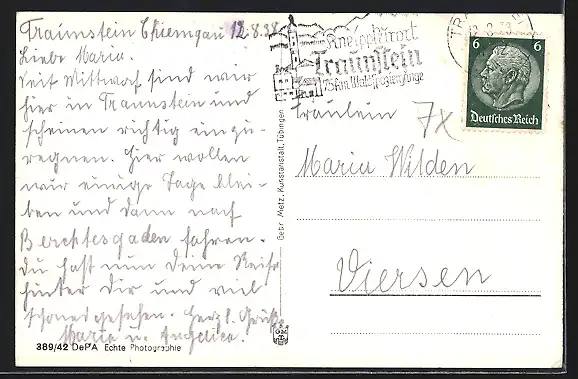 Traunstein Chiemgau 12.8.38
Liebe Maria.
Seit Mittwoch sind wir
hier in Traunstein und
scheinen richtig einzu-
regnen. Hier wollen
wir einige Tage blei-
ben und dann nach
Berchtesgaden fahren.
Du hast nun Deine Reise
hinter Dir und viel
schönes gesehen. Herzl. Grüße
Maria u. Angelica.
389/42 DePA Echte Photographie
Gebr. Metz, Kunstanstalt, Tübingen
Kneippkurort
Traunstein
75 km Waldspaziergänge
6 6
Deutsches Reich
Fräulein
Maria Wilden
Viersen